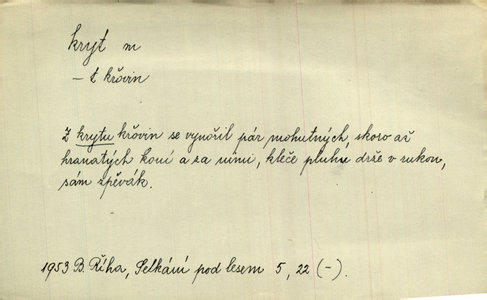 kryt m
– t křovin
Z krytu křovin se vynořil pár mohutných, skoro až
hranatých koní a za nimi, kleče pluhu drže v rukou,
sám zpěvák.
1953 B. Říha, Setkání pod lesem 5, 22 (–).